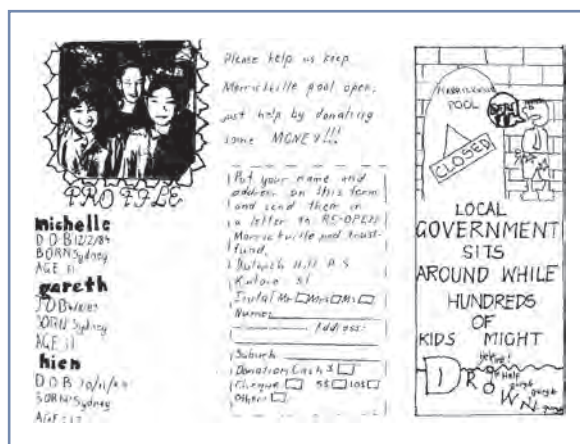 PROFILE
michelle
DOB 12/2/84
BORN Sydney
AGE 11
gareth
DOB
BORN Sydney
AGE 11
hien
DOB
BORN Sydney
AGE
Please help us keep
Marrickville pool open,
just help by donating
some MONEY!!!
Put your name and
address on this form
and send them in
a letter to RE-OPEN
Marrickville pool trust-
fund.
Dulwich Hill P.S
St
Mr Mrs Ms
Name:
Address:
Suburb
Donation Cash $
Cheque 5$ 10$
Other
MARRICKVILLE
POOL
CLOSED
LOCAL
GOVERNMENT
SITS
AROUND WHILE
HUNDREDS
OF
KIDS MIGHT
DROWN
Help
gurgle
gurgle